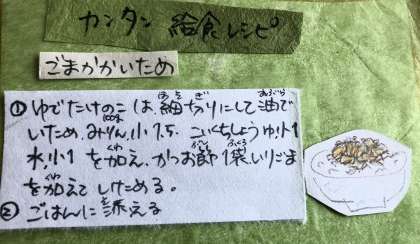 カンタン 給食レシピ
ごまかかいため
① ゆでたけのこは、細切りにして油で
いため、みりん小1.5、こいくちしょうゆ小1
水小1 を加え、かつお節1袋、いりごま
を加えていためる。
② ごはんに添える